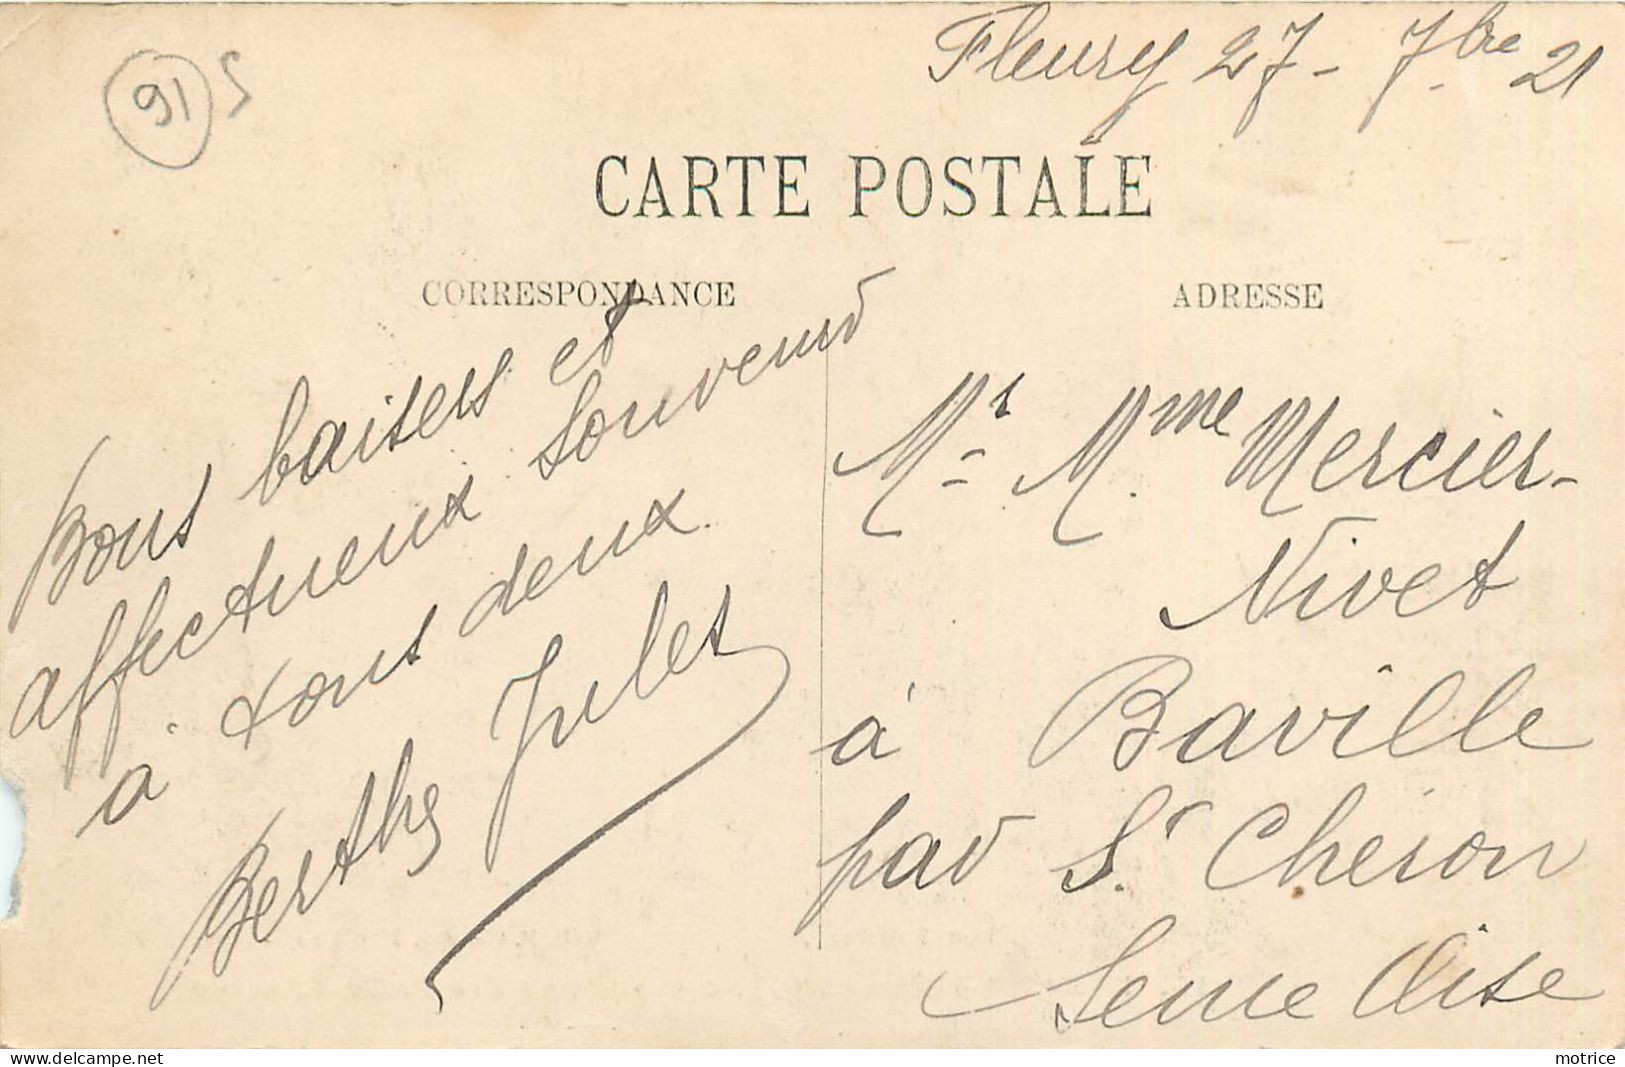 91 5
Fleury 27 - 7bre 21
CARTE POSTALE
CORRESPONDANCE
Bons baisers et
affectueux Souvenir
à tous deux.
Berthe Jules
ADRESSE
Mr Mme Mercier-
Nivet
à Baville
par St Cheron
Seine Oise
motrice